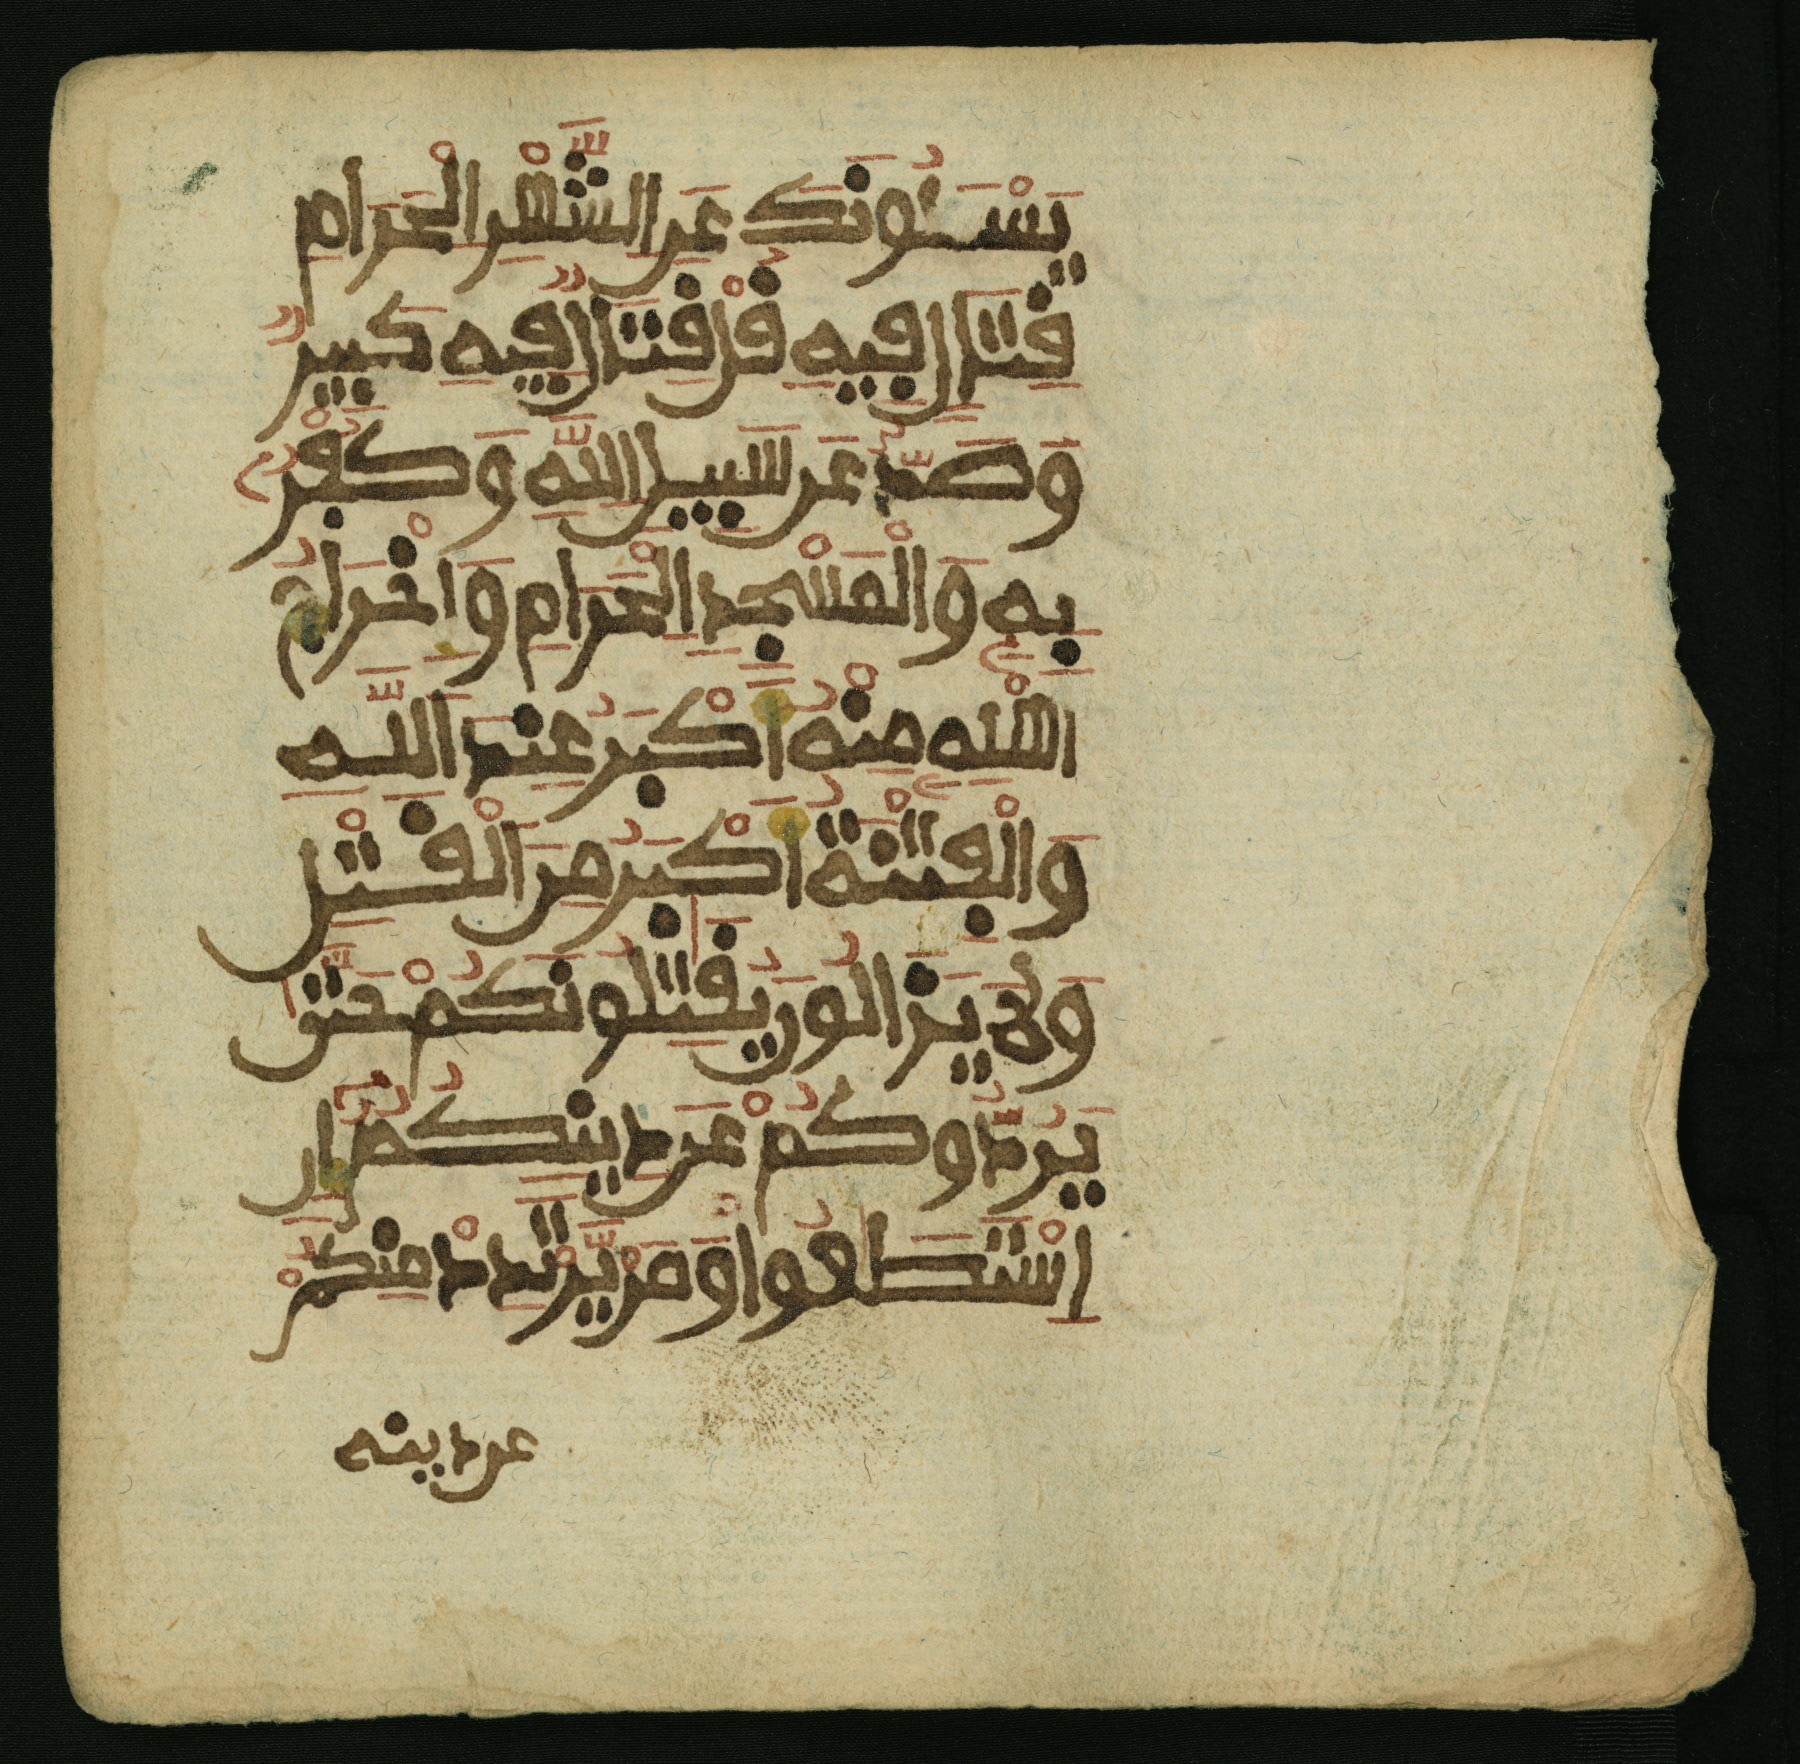 يَسْـَٔلُونَكَ عَنِ الشَّهْرِ الْحَرَامِ
قِتَالٍ فِيهِ قُلْ قِتَالٌ فِيهِ كَبِيرٌ
وَصَدٌّ عَن سَبِيلِ اللَّهِ وَكُفْرٌ
بِهِ وَالْمَسْجِدِ الْحَرَامِ وَإِخْرَاجُ
أَهْلِهِ مِنْهُ أَكْبَرُ عِندَ اللَّهِ
وَالْفِتْنَةُ أَكْبَرُ مِنَ الْقَتْلِ
وَلَا يَزَالُونَ يُقَٰتِلُونَكُمْ حَتَّىٰ
يَرُدُّوكُمْ عَن دِينِكُمْ إِنِ
اسْتَطَٰعُوا وَمَن يَّرْتَدِدْ مِنكُمْ
عن دينه